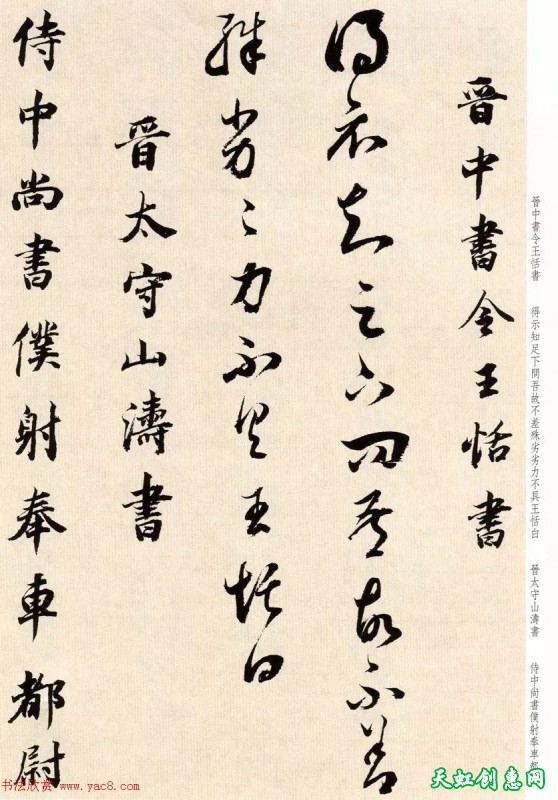 晉中書令王恬書
得示知足下問吾故不差
殊劣劣力不具王恬白
晉太守山濤書
侍中尚書僕射奉車都尉
晉中書令王恬書 得示知足下問吾故不差殊劣劣力不具王恬白 晉太守山濤書 侍中尚書僕射奉車都
书法欣赏 www.yac8.com
天虹创惠网